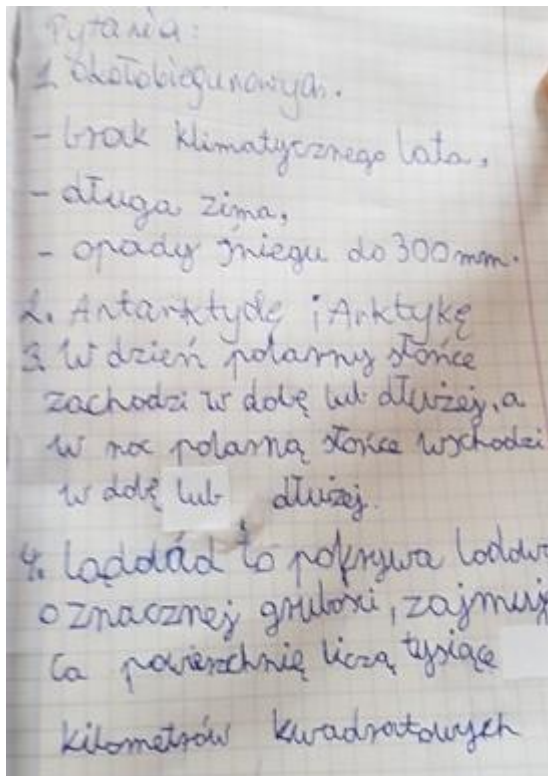 Pytania:
1. Okołobiegunowych.
- brak klimatycznego lata,
- długa zima,
- opady śniegu do 300mm.
2. Antarktydę i Arktykę
3. W dzień polarny słońce
zachodzi w dobę lub dłużej, a
w noc polarną słońce wschodzi
w dobę lub dłużej.
4. Lądolód to pokrywa lodowa
o znacznej grubości, zajmują
ca powierzchnię liczą tysiące
kilometrów kwadratowych